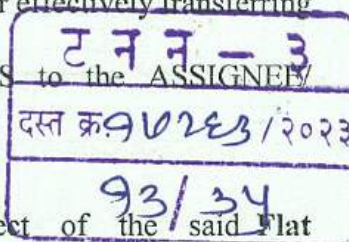 effectively transferring
ट न न - ३
to the ASSIGNEE/
दस्त क्र.१७२६३/२०२३
१३/३५
ect of the said Flat